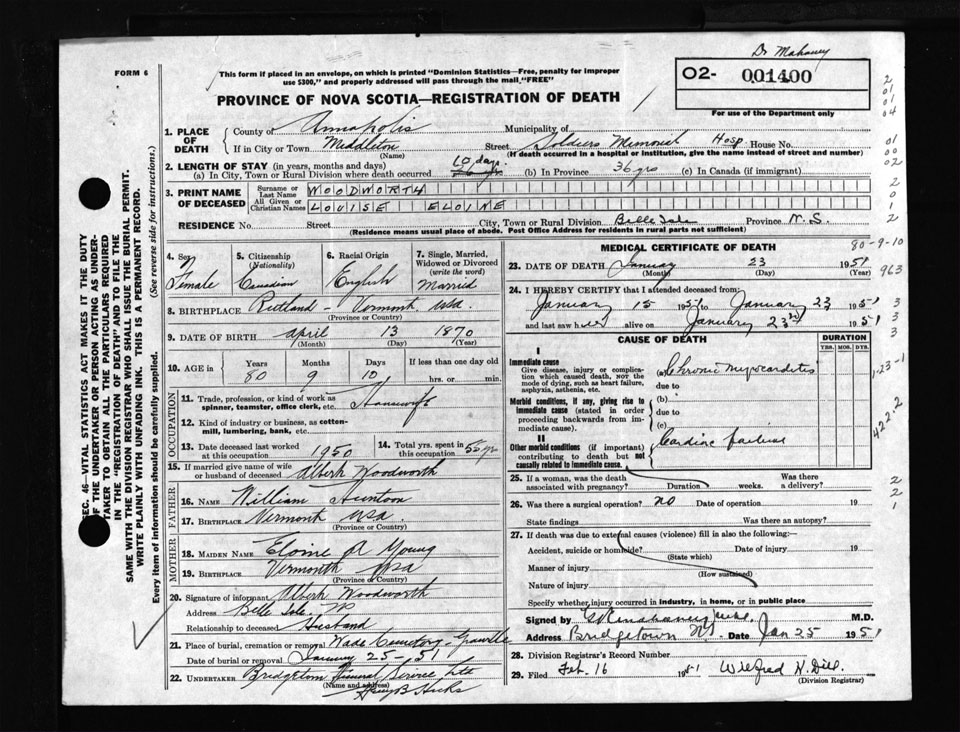 Dr Mahaney
FORM 6
This form if placed in an envelope, on which is printed "Dominion Statistics—Free, penalty for improper
use $300," and properly addressed will pass through the mail "FREE"
02- 001400
For use of the Department only
PROVINCE OF NOVA SCOTIA—REGISTRATION OF DEATH
1. PLACE OF DEATH { County of Annapolis Municipality of
If in City or Town Middleton (Name) Street Soldiers Memorial Hosp House No.
(If death occurred in a hospital or institution, give the name instead of street and number)
2. LENGTH OF STAY (in years, months and days)
(a) In City, Town or Rural Division where death occurred 10 days. (b) In Province 36 yrs (c) In Canada (if immigrant)
3. PRINT NAME OF DECEASED
Surname or Last Name WOODWORTH
All Given or Christian Names LOUISE ELOINE
RESIDENCE No. Street City, Town or Rural Division Belle Isle Province N.S.
(Residence means usual place of abode. Post Office Address for residents in rural parts not sufficient)
4. Sex Female
5. Citizenship (Nationality) Canadian
6. Racial Origin English
7. Single, Married, Widowed or Divorced (write the word) Married
8. BIRTHPLACE Rutland - Vermont USA.
(Province or Country)
9. DATE OF BIRTH April 13 1870
(Month) (Day) (Year)
10. AGE in { Years 80 Months 9 Days 10 If less than one day old hrs. or min.
OCCUPATION
11. Trade, profession, or kind of work as spinner, teamster, office clerk, etc. Housewife
12. Kind of industry or business, as cotton-mill, lumbering, bank, etc.
13. Date deceased last worked at this occupation 1950
14. Total yrs. spent in this occupation 55 yrs
15. If married give name of wife or husband of deceased Albert Woodworth
FATHER
16. NAME William
17. BIRTHPLACE Vermont USA.
(Province or Country)
MOTHER
18. MAIDEN NAME Eloine A Young
19. BIRTHPLACE Vermont USA
(Province or Country)
20. Signature of informant Albert Woodworth
Address Belle Isle, NS
Relationship to deceased Husband
21. Place of burial, cremation or removal Wade Cemetery - Granville
Date of burial or removal January 25 - 51
22. UNDERTAKER Bridgetown Funeral Service Ltd
(Name and address) Henry B Hicks
MEDICAL CERTIFICATE OF DEATH
80-9-10
23. DATE OF DEATH January 23 1951
(Month) (Day) (Year)
963
24. I HEREBY CERTIFY that I attended deceased from:
January 15 1951 to January 23 1951
and last saw her alive on January 23rd 1951
CAUSE OF DEATH
DURATION
YRS. MOS. DYS.
I
Immediate cause
Give disease, injury or complication which caused death, NOT the mode of dying, such as heart failure, asphyxia, asthenia, etc.
(a) Chronic Myocarditis
due to
Morbid conditions, if any, giving rise to immediate cause (stated in order proceeding backwards from immediate cause).
(b)
due to
(c)
II
Other morbid conditions (if important) contributing to death but not causally related to immediate cause.
Cardiac failure
422-2
25. If a woman, was the death associated with pregnancy? Duration weeks. Was there a delivery?
26. Was there a surgical operation? no Date of operation 19
State findings Was there an autopsy?
27. If death was due to external causes (violence) fill in also the following:
Accident, suicide or homicide? Date of injury 19
(State which)
Manner of injury
(How sustained)
Nature of injury
Specify whether injury occurred in industry, in home, or in public place
Signed by M.D.
Address Bridgetown NS - Date Jan 25 1951
28. Division Registrar's Record Number
29. Filed Feb. 16 1951 Wilfred H. Dill.
(Division Registrar)
SEC. 46—VITAL STATISTICS ACT MAKES IT THE DUTY
OF THE UNDERTAKER OR PERSON ACTING AS UNDER-
TAKER TO OBTAIN ALL THE PARTICULARS REQUIRED
IN THE "REGISTRATION OF DEATH" AND TO FILE THE
SAME WITH THE DIVISION REGISTRAR WHO SHALL ISSUE THE BURIAL PERMIT.
WRITE PLAINLY WITH UNFADING INK. THIS IS A PERMANENT RECORD.
Every item of information should be carefully supplied. (See reverse side for instructions.)